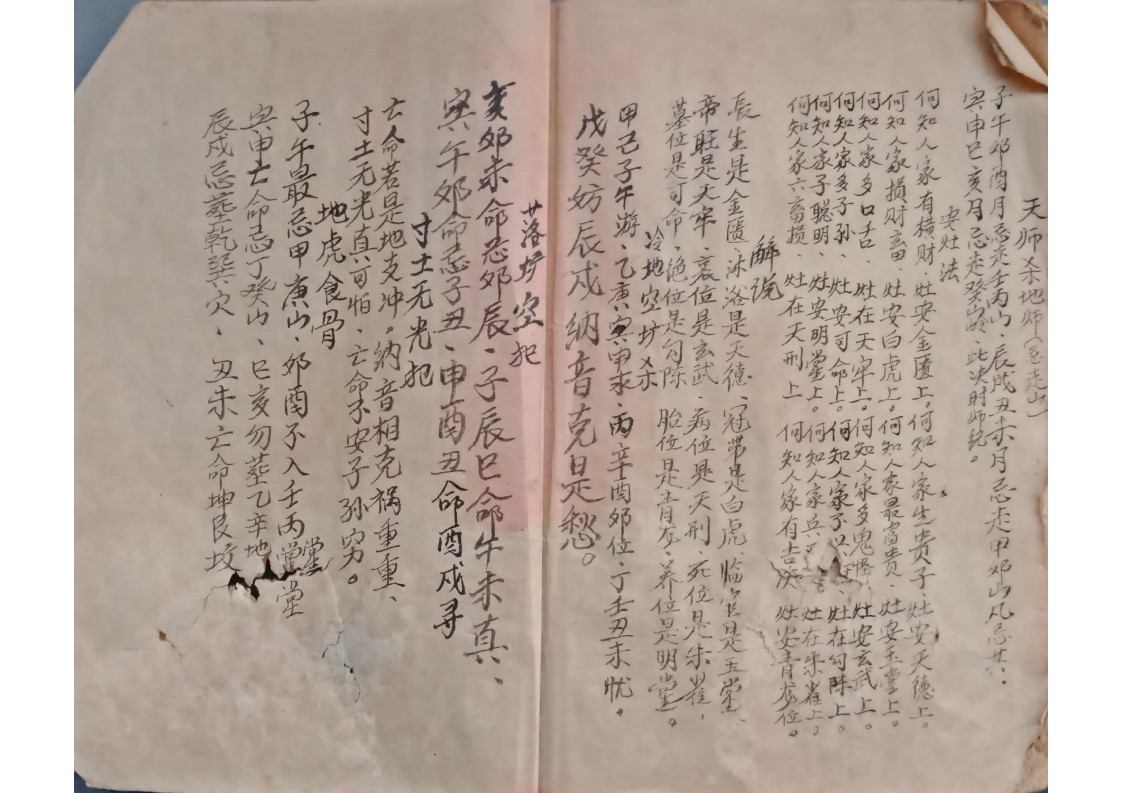 天师杀地师(忌走山)
子午卯酉月忌走壬丙山、辰戌丑未月忌走甲卯山凡忌共、
寅申巳亥月忌走癸山、此决时师
安灶法
何知人家有横财、灶安金匮上。何知人家生贵子、灶安天德上。
何知人家损财畜、灶安白虎上。何知人家最富贵、灶安玉堂上。
何知人家多口舌、灶在天牢上。何知人家多鬼怪、灶安玄武上。
何知人家多子孙、灶安司命上。何知人家不、灶在勾陈上。
何知人家子聪明、灶安明堂上。何知人家兵、灶在朱雀上。
何知人家六畜损、灶在天刑上 何知人家有吉庆 灶安青龙位。
解说
长生是金匮、沐浴是天德、冠带是白虎、临官是玉堂、
帝旺是天牢、衰位是玄武、病位是天刑、死位是朱雀，
墓位是司命、绝位是勾陈 胎位是青龙、养位是明堂。
冷地空坟杀
甲己子午游、乙庚寅申求、丙辛酉卯位、丁壬丑未忧。
戊癸妨辰戌纳音克是愁。
落圹空犯
亥卯未命忌卯辰、子辰巳命午未真、
寅午卯命忌子丑、申酉丑命酉戌寻
寸土无光犯
亡命若是地支冲。纳音相克祸重重、
寸土无光真可怕、亡命不安子孙穷。
地虎食骨
子午最忌甲庚山、卯酉不入壬丙堂
寅申亡命忌丁癸山、巳亥勿葬乙辛地
辰戌忌葬乾巽穴、丑未亡命坤艮坟